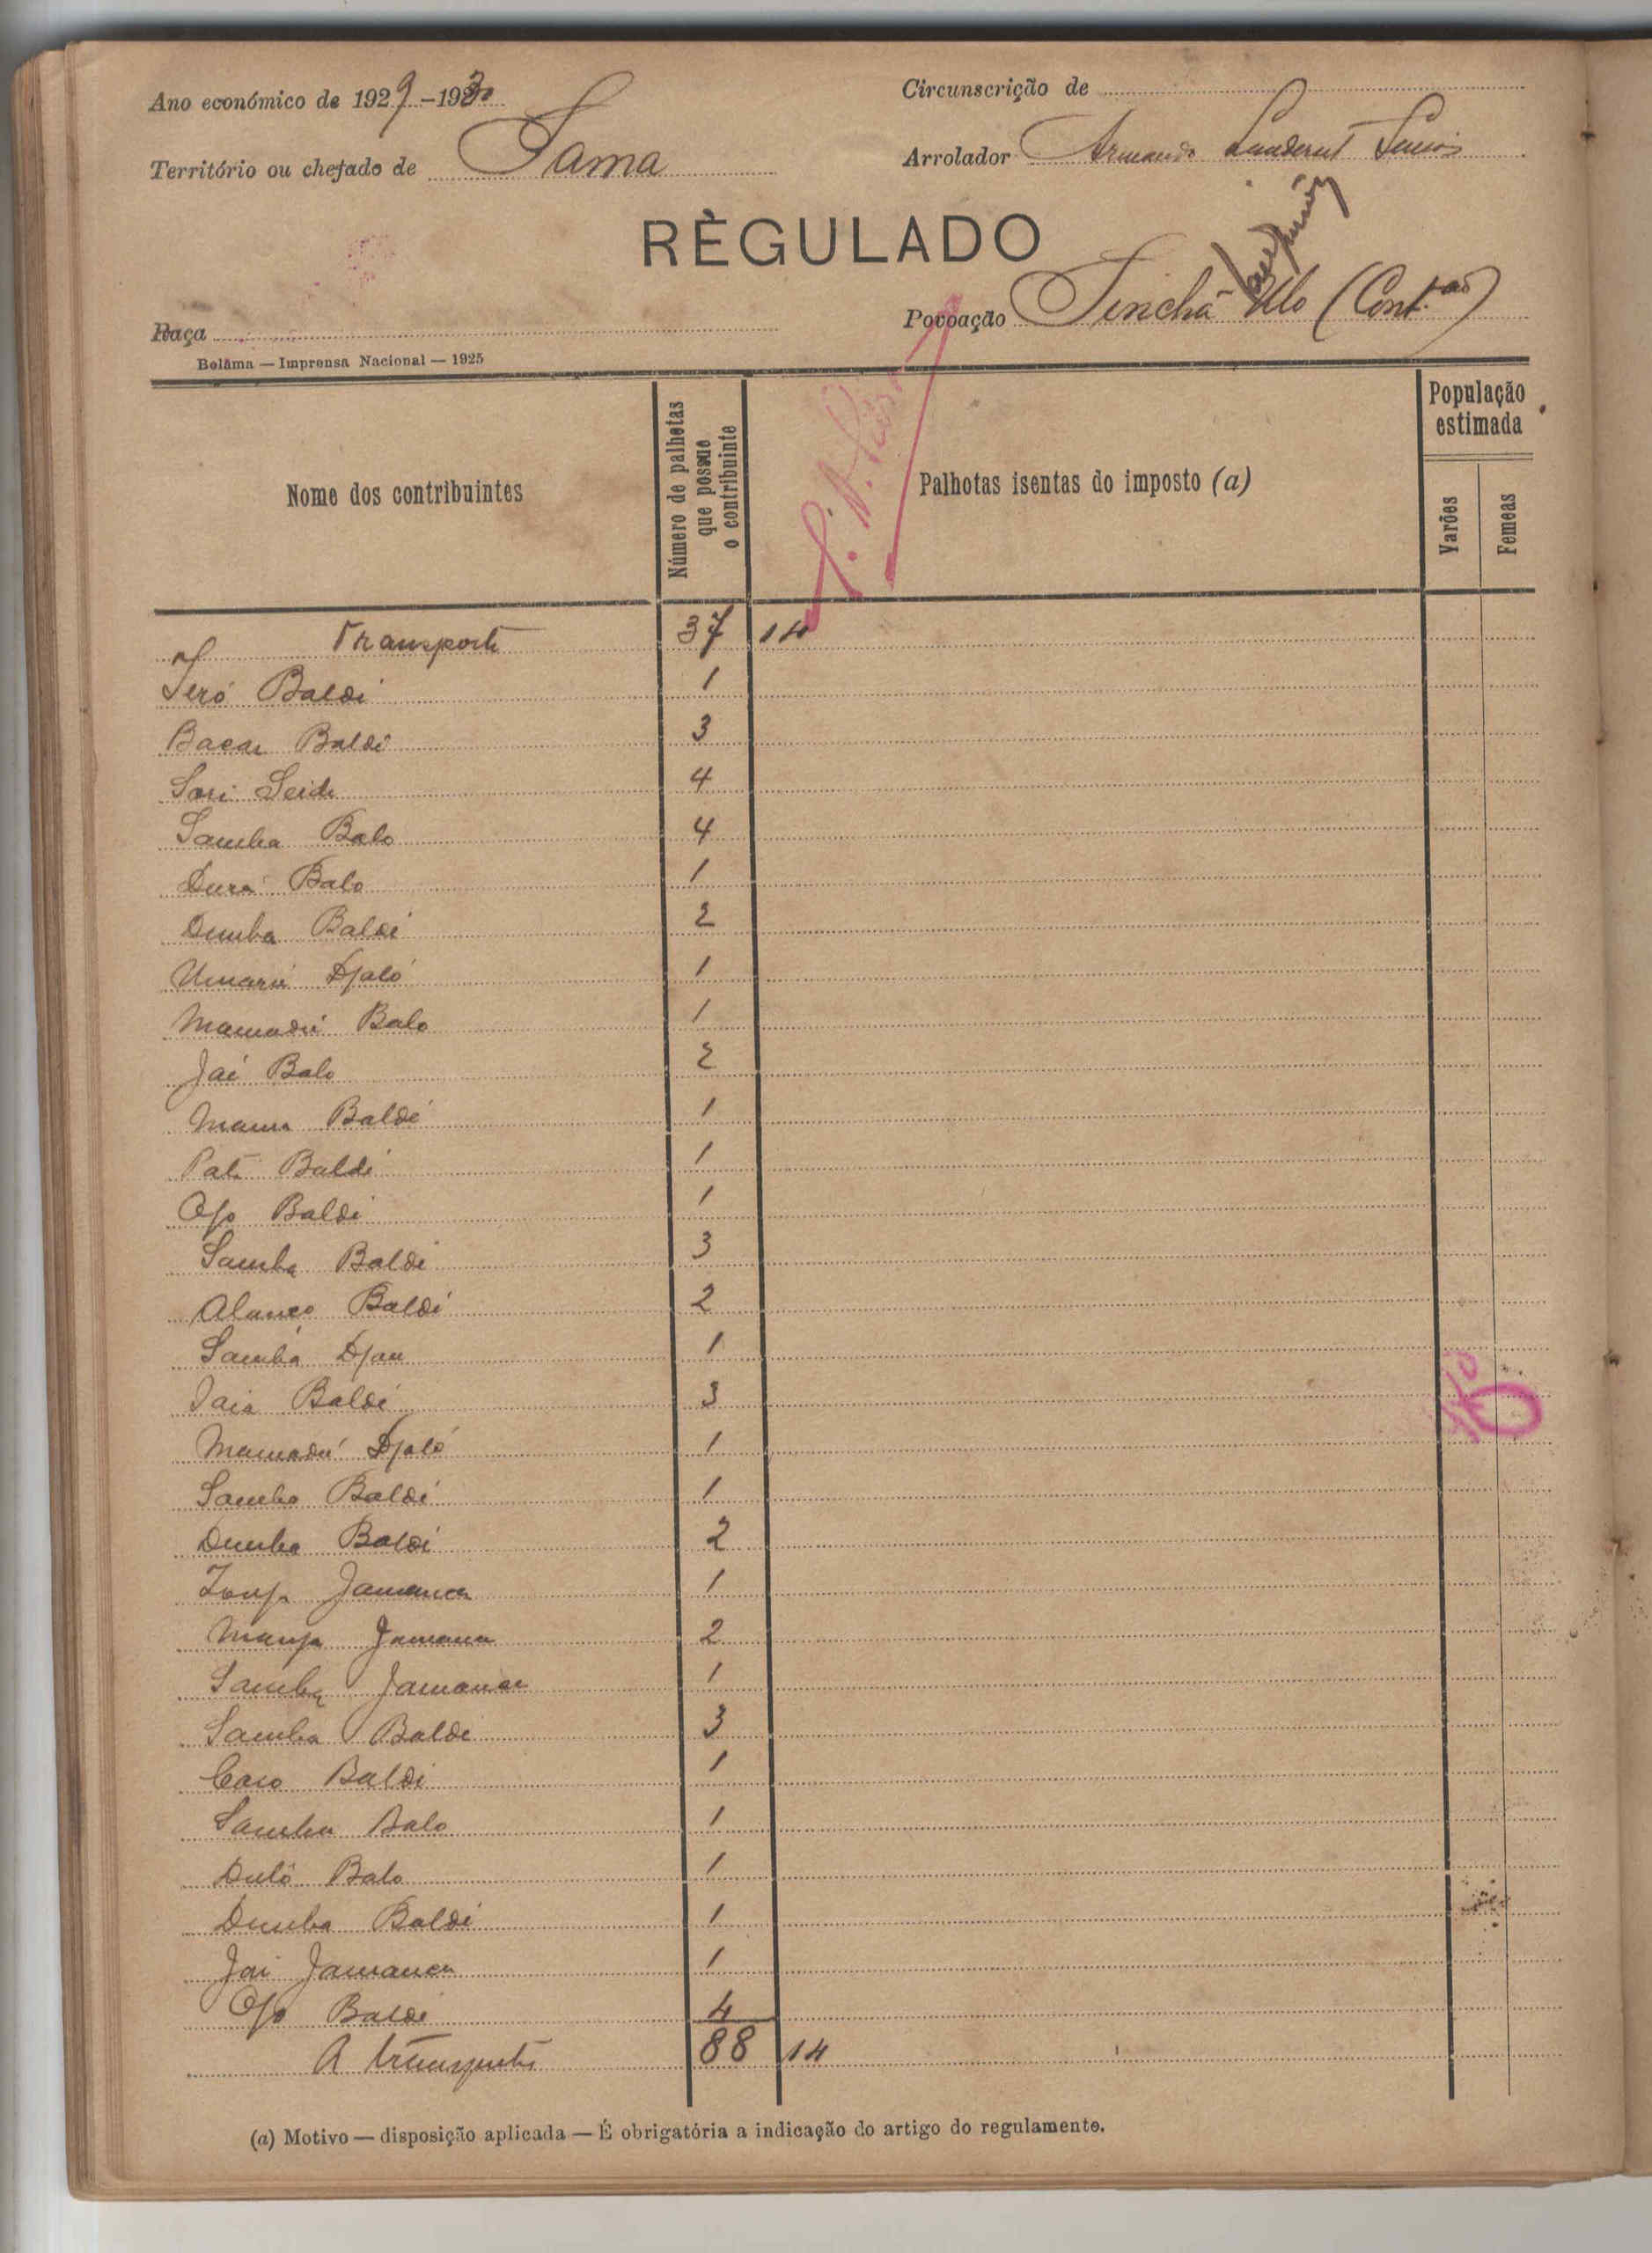 Ano económico de 1929-1930
Circunscrição de
Território ou chefado de Sama
Arrolador Armando
RÈGULADO
Povoação Sinchã Ulo (Cont.ão)
Raça
Bolama — Imprensa Nacional — 1925
Nome dos contribuintes
Número de palhotas que possue o contribuinte
Palhotas isentas do imposto (a)
População estimada
Varões
Femeas
Transporte 37 14
Seró Baldé 1
Bacar Baldé 3
Sori Seidi 4
Samba Balo 4
Dura Balo 1
Demba Baldé 2
Umarú Djaló 1
Mamadú Balo 1
Jai Balo 2
Baldé 1
Pate Baldé 1
Ofo Baldé 1
Samba Baldé 3
Baldé 2
Samba Djau 1
Iaia Baldé 3
Mamadú Djaló 1
Sambo Baldé 1
Demba Baldé 2
Jamanca 1
Jamanca 2
Samba Jamanca 1
Samba Baldé 3
Baldé 1
Samba Balo 1
Duló Balo 1
Demba Baldé 1
Jai Jamanca 1
Ofo Baldé 4
A transporte 88 14
(a) Motivo — disposição aplicada — É obrigatória a indicação do artigo do regulamento.